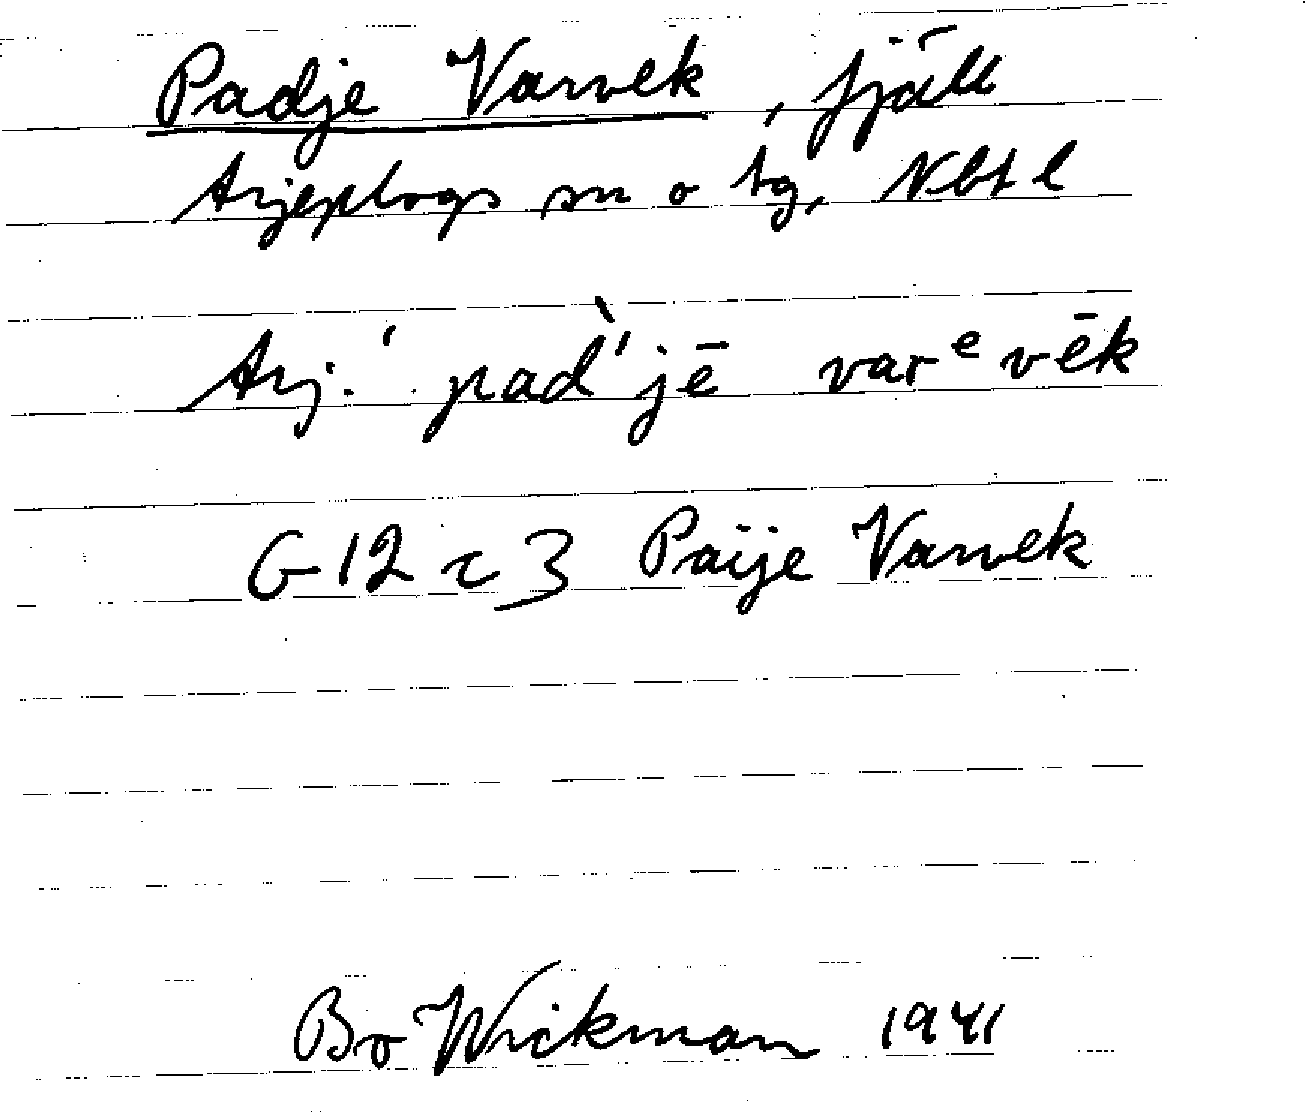 Padje Varvek, fjäll
Arjeplogs sn o tg, Nbt l
Arj. ˈpad̀ˈjē varᵉvēk
G 12 c 3 Paije Varvek
Bo Wickman 1941